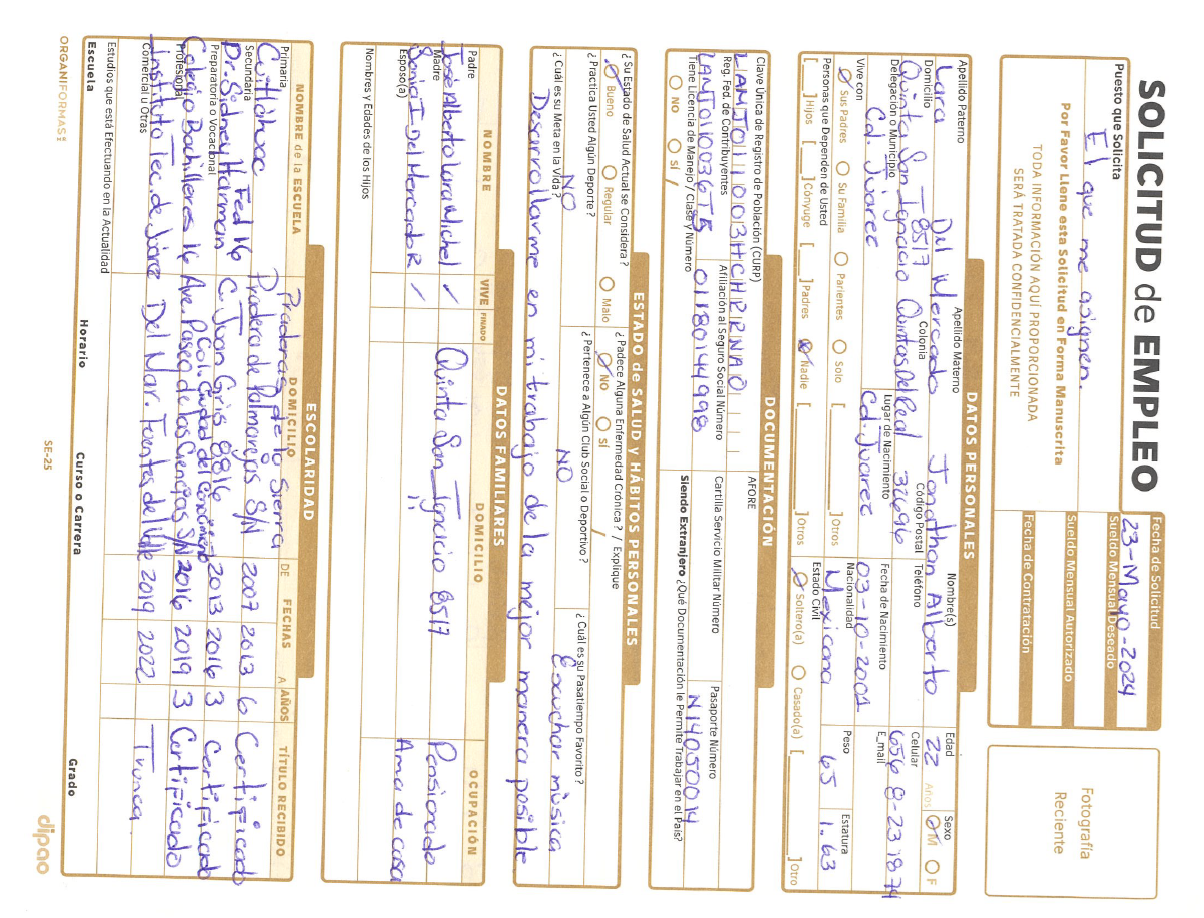 SOLICITUD de EMPLEO
Fecha de Solicitud
23-Mayo-2024
Puesto que Solicita
El que me asignen.
Sueldo Mensual Deseado
Sueldo Mensual Autorizado
Fecha de Contratación
Por Favor Llene esta Solicitud en Forma Manuscrita
TODA INFORMACIÓN AQUÍ PROPORCIONADA
SERÁ TRATADA CONFIDENCIALMENTE
Fotografía
Reciente
DATOS PERSONALES
Apellido Paterno Apellido Materno Nombre(s) Edad Sexo
Lara Del Mercado Jonathan Alberto 22 Años M F
Domicilio Colonia Código Postal Teléfono Celular
Quinta San Ignacio 8517 Quintas Del Real 32696 656 8-23 18 74
Delegación o Municipio Lugar de Nacimiento Fecha de Nacimiento E_mail
Cd. Juarez Cd. Juarez 03-10-2001
Vive con Nacionalidad Peso Estatura
Sus Padres Su Familia Parientes Solo Otros Mexicana 65 1.63
Personas que Dependen de Usted Estado Civil
Hijos Cónyuge Padres Nadie Otros Soltero(a) Casado(a) Otro
DOCUMENTACIÓN
Clave Única de Registro de Población (CURP) AFORE
LAMJ011003HCHRRNA0
Reg. Fed. de Contribuyentes Afiliación al Seguro Social Número Cartilla Servicio Militar Número Pasaporte Número
01180144998 N14050014
Tiene Licencia de Manejo / Clase y Número Siendo Extranjero ¿Qué Documentación le Permite Trabajar en el País?
NO SÍ /
ESTADO de SALUD Y HÁBITOS PERSONALES
¿Su Estado de Salud Actual se Considera? ¿Padece Alguna Enfermedad Crónica? / Explique
Bueno Regular Malo NO SÍ /
¿Practica Usted Algún Deporte? ¿Pertenece a Algún Club Social o Deportivo? ¿Cuál es su Pasatiempo Favorito?
NO NO Escuchar música
¿Cuál es su Meta en la Vida?
Desarrollarme en mi trabajo de la mejor manera posible
DATOS FAMILIARES
NOMBRE VIVE FINADO DOMICILIO OCUPACIÓN
Padre
Jose Alberto Lara Michel / Quinta San Ignacio 8517 Pensionado
Madre
Sonia I Del Mercado R / Ama de casa
Esposo(a)
Nombres y Edades de los Hijos
ESCOLARIDAD
NOMBRE de la ESCUELA DOMICILIO DE FECHAS A AÑOS TÍTULO RECIBIDO
Primaria Pradera de la Sierra
Cuitlahuac Pradera de Palmarejos S/N 2007 2013 6 Certificado
Secundaria
Dr. Sidney Harman Fed 16 C. Juan Gris 8816 2013 2016 3 Certificado
Preparatoria o Vocacional Col. Ciudad del Conocimiento
Colegio Bachilleres 16 Ave. Paseo de las Ciencias S/N 2016 2019 3 Certificado
Profesional
Instituto Tec. de Juarez Del Mar. Fuentes del Valle 2019 2022 Trunca
Comercial u Otras
Estudios que está Efectuando en la Actualidad
Escuela Horario Curso o Carrera Grado
ORGANIFORMAS SE-25 dipao